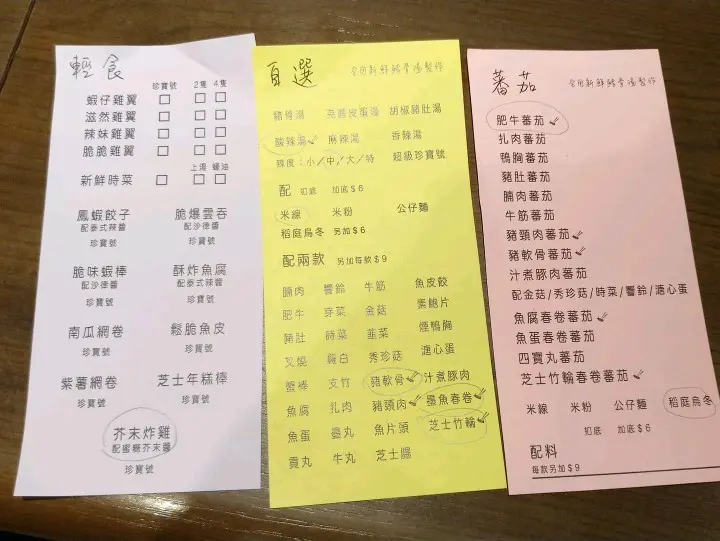 輕食
珍寶號 2隻 4隻
蝦仔雞翼 □ □ □
滋然雞翼 □ □ □
辣妹雞翼 □ □ □
脆脆雞翼 □ □ □
上湯 蠔油
新鮮時菜 □ □ □
鳳蝦餃子 脆爆雲吞
配泰式辣醬 配沙律醬
珍寶號 珍寶號
脆味蝦棒 酥炸魚腐
配沙律醬 配泰式辣醬
珍寶號 珍寶號
南瓜網卷 鬆脆魚皮
珍寶號 珍寶號
紫薯網卷 芝士年糕棒
珍寶號 珍寶號
芥末炸雞
配蜜糖芥末醬
珍寶號
自選 全日新鮮豬骨湯製作
豬骨湯 皮蛋湯 胡椒豬肚湯
酸辣湯 麻辣湯 香辣湯
辣度：小／中／大／特 超級珍寶號
配 扣底 加底$6
米線 米粉 公仔麵
稻庭烏冬 另加$6
配兩款 另加每款$9
腩肉 響鈴 牛筋 魚皮餃
肥牛 芽菜 金菇 素鮑片
豬肚 時菜 韮菜 煙鴨胸
叉燒 雞白 秀珍菇 溏心蛋
蟹棒 支竹 豬軟骨 汁煮豚肉
魚腐 扎肉 豬頸肉 墨魚春卷
魚蛋 墨丸 魚片頭 芝士竹輪
貢丸 牛丸 芝士腸
蕃茄 全日新鮮豬骨湯製作
肥牛蕃茄
扎肉蕃茄
鴨胸蕃茄
豬肚蕃茄
腩肉蕃茄
牛筋蕃茄
豬頸肉蕃茄
豬軟骨蕃茄
汁煮豚肉蕃茄
配金菇/秀珍菇/時菜/響鈴/溏心蛋
魚腐春卷蕃茄
魚蛋春卷蕃茄
四寶丸蕃茄
芝士竹輪春卷蕃茄
米線 米粉 公仔麵 稻庭烏冬
扣底 加底$6
配料
每款另加$9